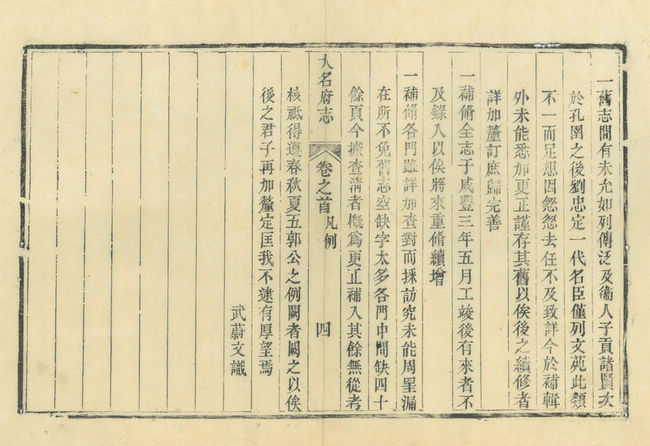 一舊志間有未允如列傳泛及衛人子貢諸賢次
於孔圉之後劉忠定一代名臣僅列文苑此類
不一而足想因怱怱去任不及致詳今於補輯
外未能悉加更正謹存其舊以俟後之續修者
詳加釐訂庶歸完善
一補脩全志于咸豐三年五月工竣後有來者不
及錄入以俟將來重脩續增
一補脩各門雖詳加查對而採訪究未能周罣漏
在所不免舊志空缺字太多各門中間缺四十
餘頁今據查清者槪爲更正補入其餘無從考
大名府志 卷之首 凡例 四
核祗得遵春秋夏五郭公之例闕者闕之以俟
後之君子再加釐定匡我不逮有厚望焉
武蔚文識